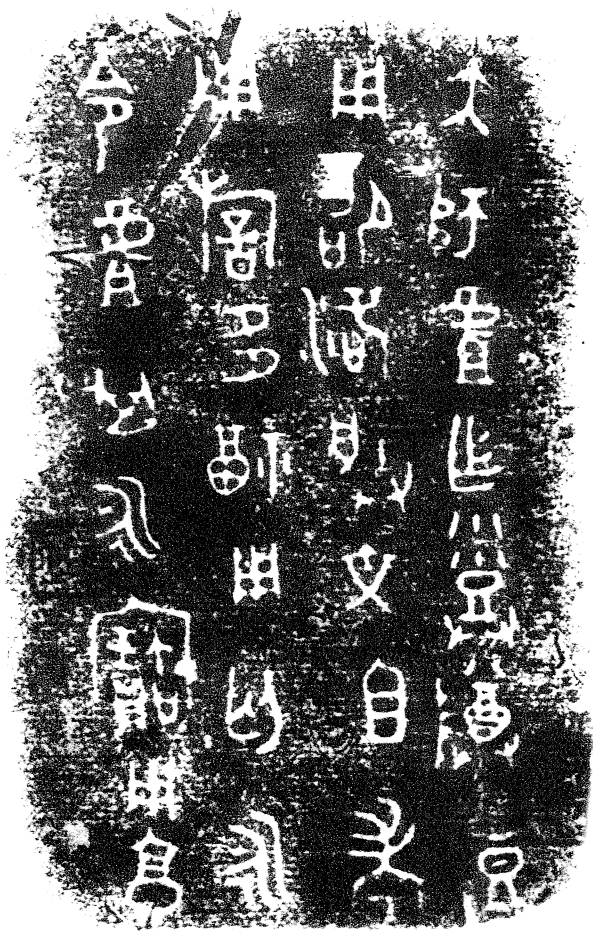 大師虘乍登尊豆
用卲洛朕文且考
用旂多福用匄永
令虘其永寶用亯